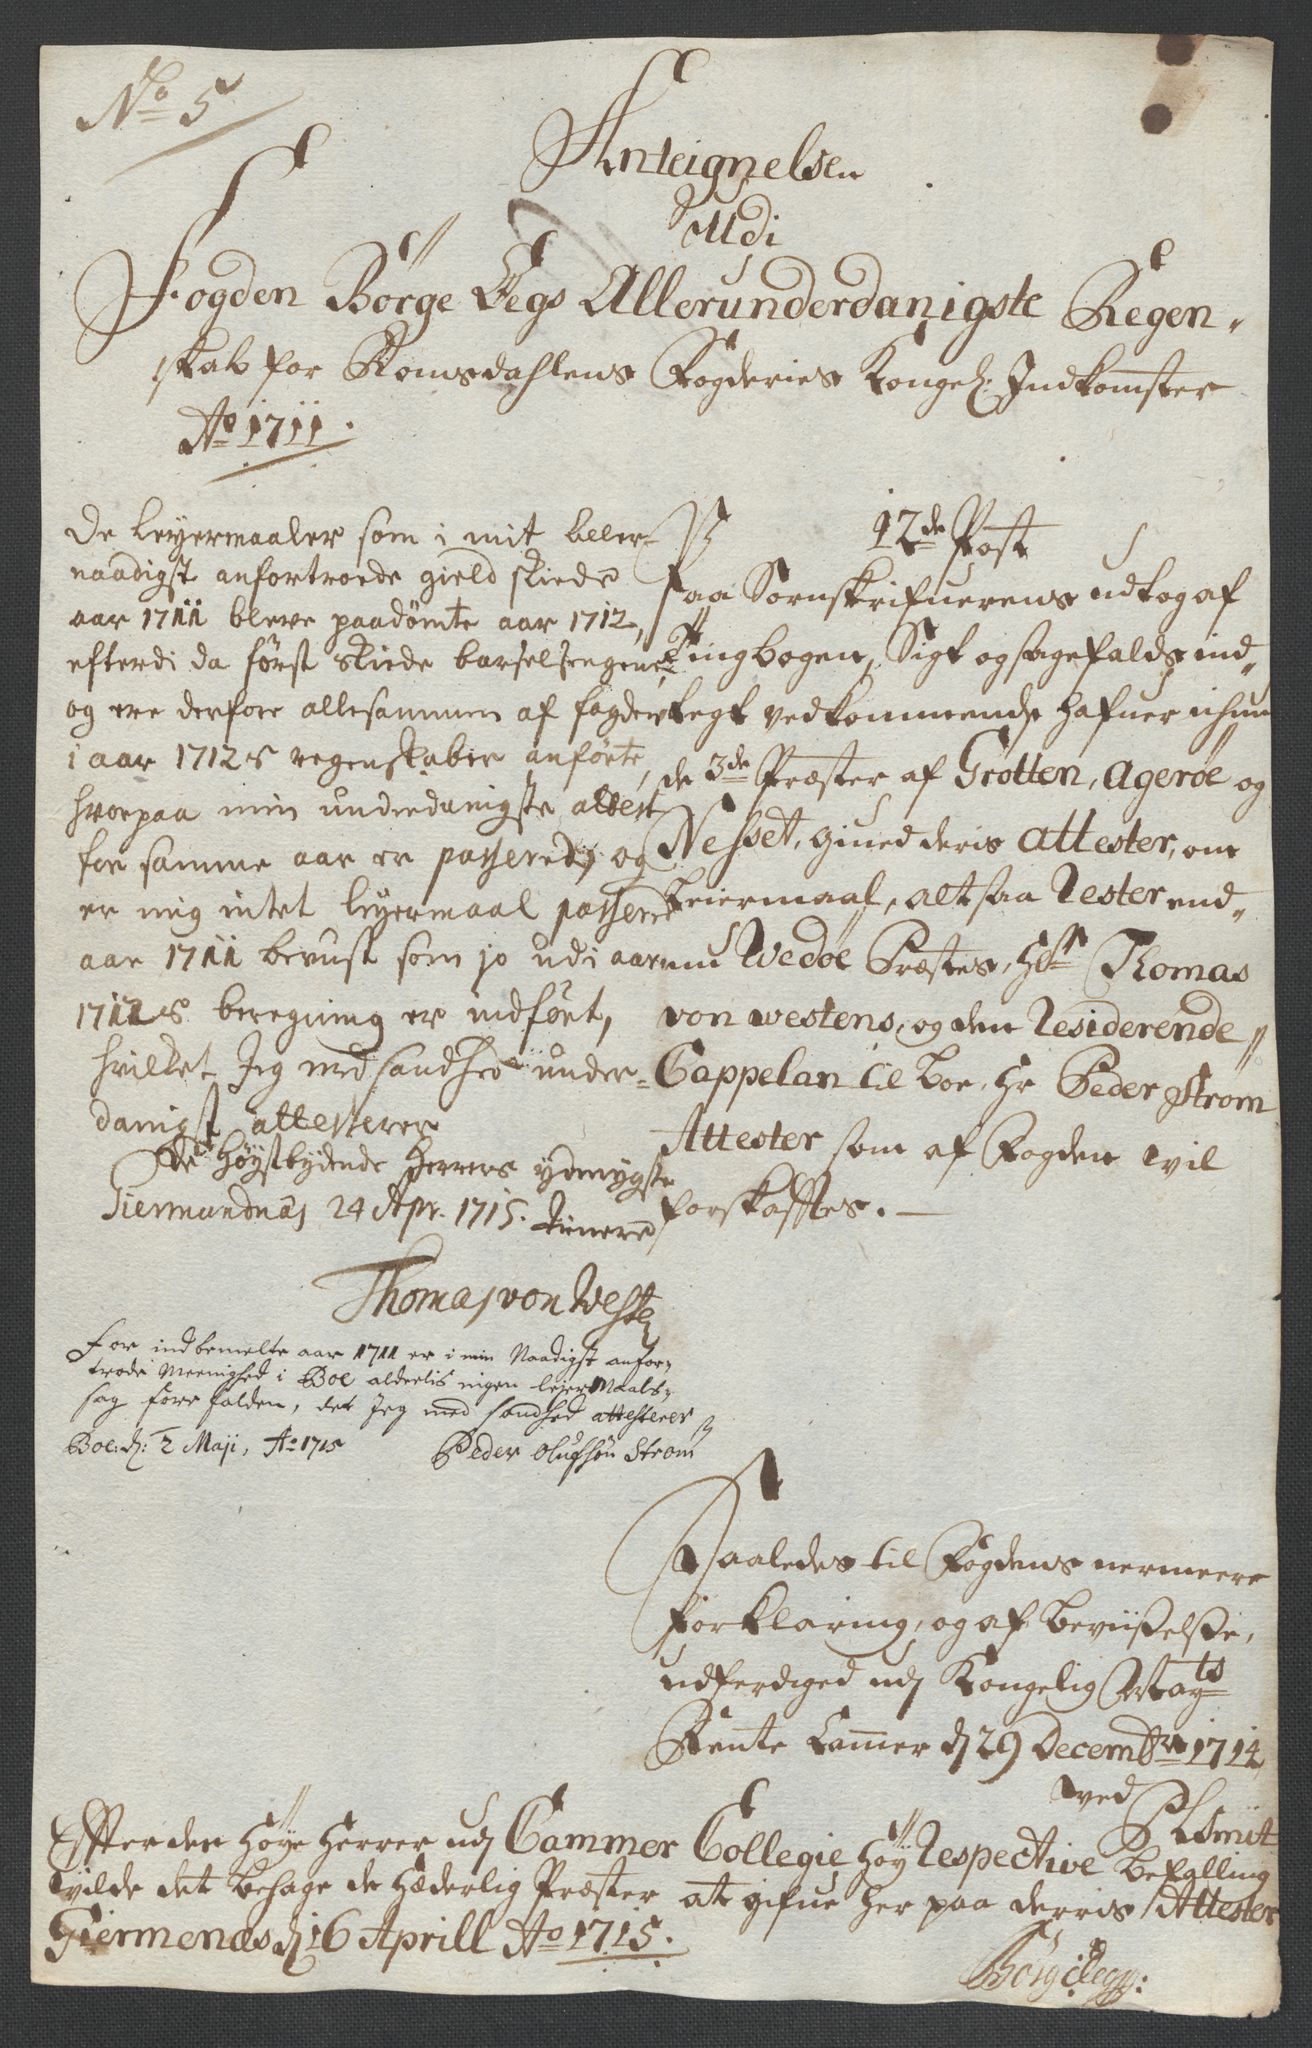 No 5
Anteignelsen
Udi
Fogden Börge Eegs Allerunderdanigste Regen-
skab for Romsdahlens Fogderies Kongel: Indkomster
Ao 1711.
De leyermaaler som i mit aller-
naadigst anfortroede gield skiede
aar 1711 bleve paadömte aar 1712,
efterdi da först skiede barselsengene
og ere derfore allesammen af fogden
i aar 1712s regenskaber anförte,
hvorpaa min underdanigste attest
for samme aar er passered, og
er mig intet leyermaal passered
aar 1711 bevust som jo udi aar
1712s beregning er indfört,
hvilket Jeg med sandhed under-
danigst attesterer
De höystbydende Herrers ydmygste
Giermundnæs 24 Apr. 1715. tienere
Thomas von Westen
For indbemelte aar 1711 er i min Naadigst anfor-
trode Meenighed i Boe alderlis ingen leier Maals-
sag fore falden, det Jeg med sandhed attesterer
Boe: d: 2 Maji, Ao 1715 Peder Olufsön Strom
12de Post
Paa Sornskrifuerens udtog af
Tingbogen, Sigt og sagefalds ind-
tegt vedkommende hafuer ichun
de 3de Præster af Grötten, Agerøe og
Nesset, giued deris attester, om
Leiermaal, altsaa Rester end-
nu Wedöe Præstes, Hr Thomas
von westens, og den Residerende
Cappelan til Boe, Hr Peder Strom
Attester som af Fogden vil
forskaffes.
Saaledes til Fogdens nermeere
forklaring, og af beviißelße,
udferdiged udj Kongelig Mayts
Rente Cammer d 29 Decembr 1714
ved
Smit
Effter den Höye Herrer udj Cammer Collegie Höy Respective befalling
vilde det behage de Hæderlig Præster at gifue her paa derris Attester
Giermenæs d 16 Aprill Ao 1715.
Börge Eeg: